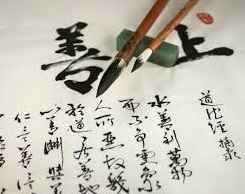 上善
道德經 摘錄
水善利萬物
而不爭處衆
人所惡故幾
於道居善地
心善淵與善
仁言善信